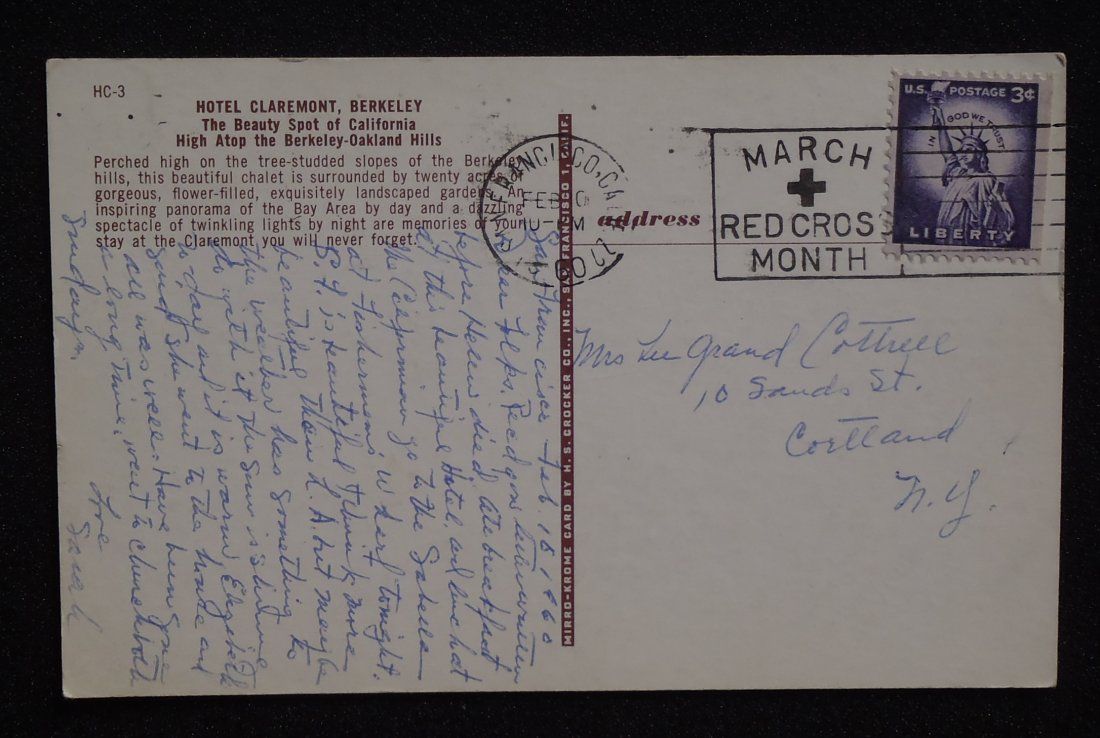 HC-3
HOTEL CLAREMONT, BERKELEY
The Beauty Spot of California
High Atop the Berkeley-Oakland Hills
Perched high on the tree-studded slopes of the Berkeley
hills, this beautiful chalet is surrounded by twenty acres of
gorgeous, flower-filled, exquisitely landscaped gardens. An
inspiring panorama of the Bay Area by day and a dazzling
spectacle of twinkling lights by night are memories of your
stay at the Claremont you will never forget.
San Francisco Feb. 10 1960
Dear Folks, Red gone
before Helen died, ate breakfast
of this beautiful Hotel, and
we go to the
at Fishermens Wharf tonight.
S. F. is beautiful I think more
beautiful than L. A. but maybe
the weather has something to
do with it. The sun is shining
to day and it is warm. Elizabeth
said she went to the house and
all was well. Have been gone
a long time, went to church both
Sundays,
Love
Sarah
MIRRO-KROME CARD BY H. S. CROCKER CO., INC., SAN FRANCISCO 1, CALIF.
address
SAN FRANCISCO, CALIF.
FEB 10
1960
MARCH
RED CROSS
MONTH
U.S. POSTAGE 3¢
IN GOD WE TRUST
LIBERTY
Mrs Le Grand Cottrell
10 Sands St.
Cortland
N. Y.